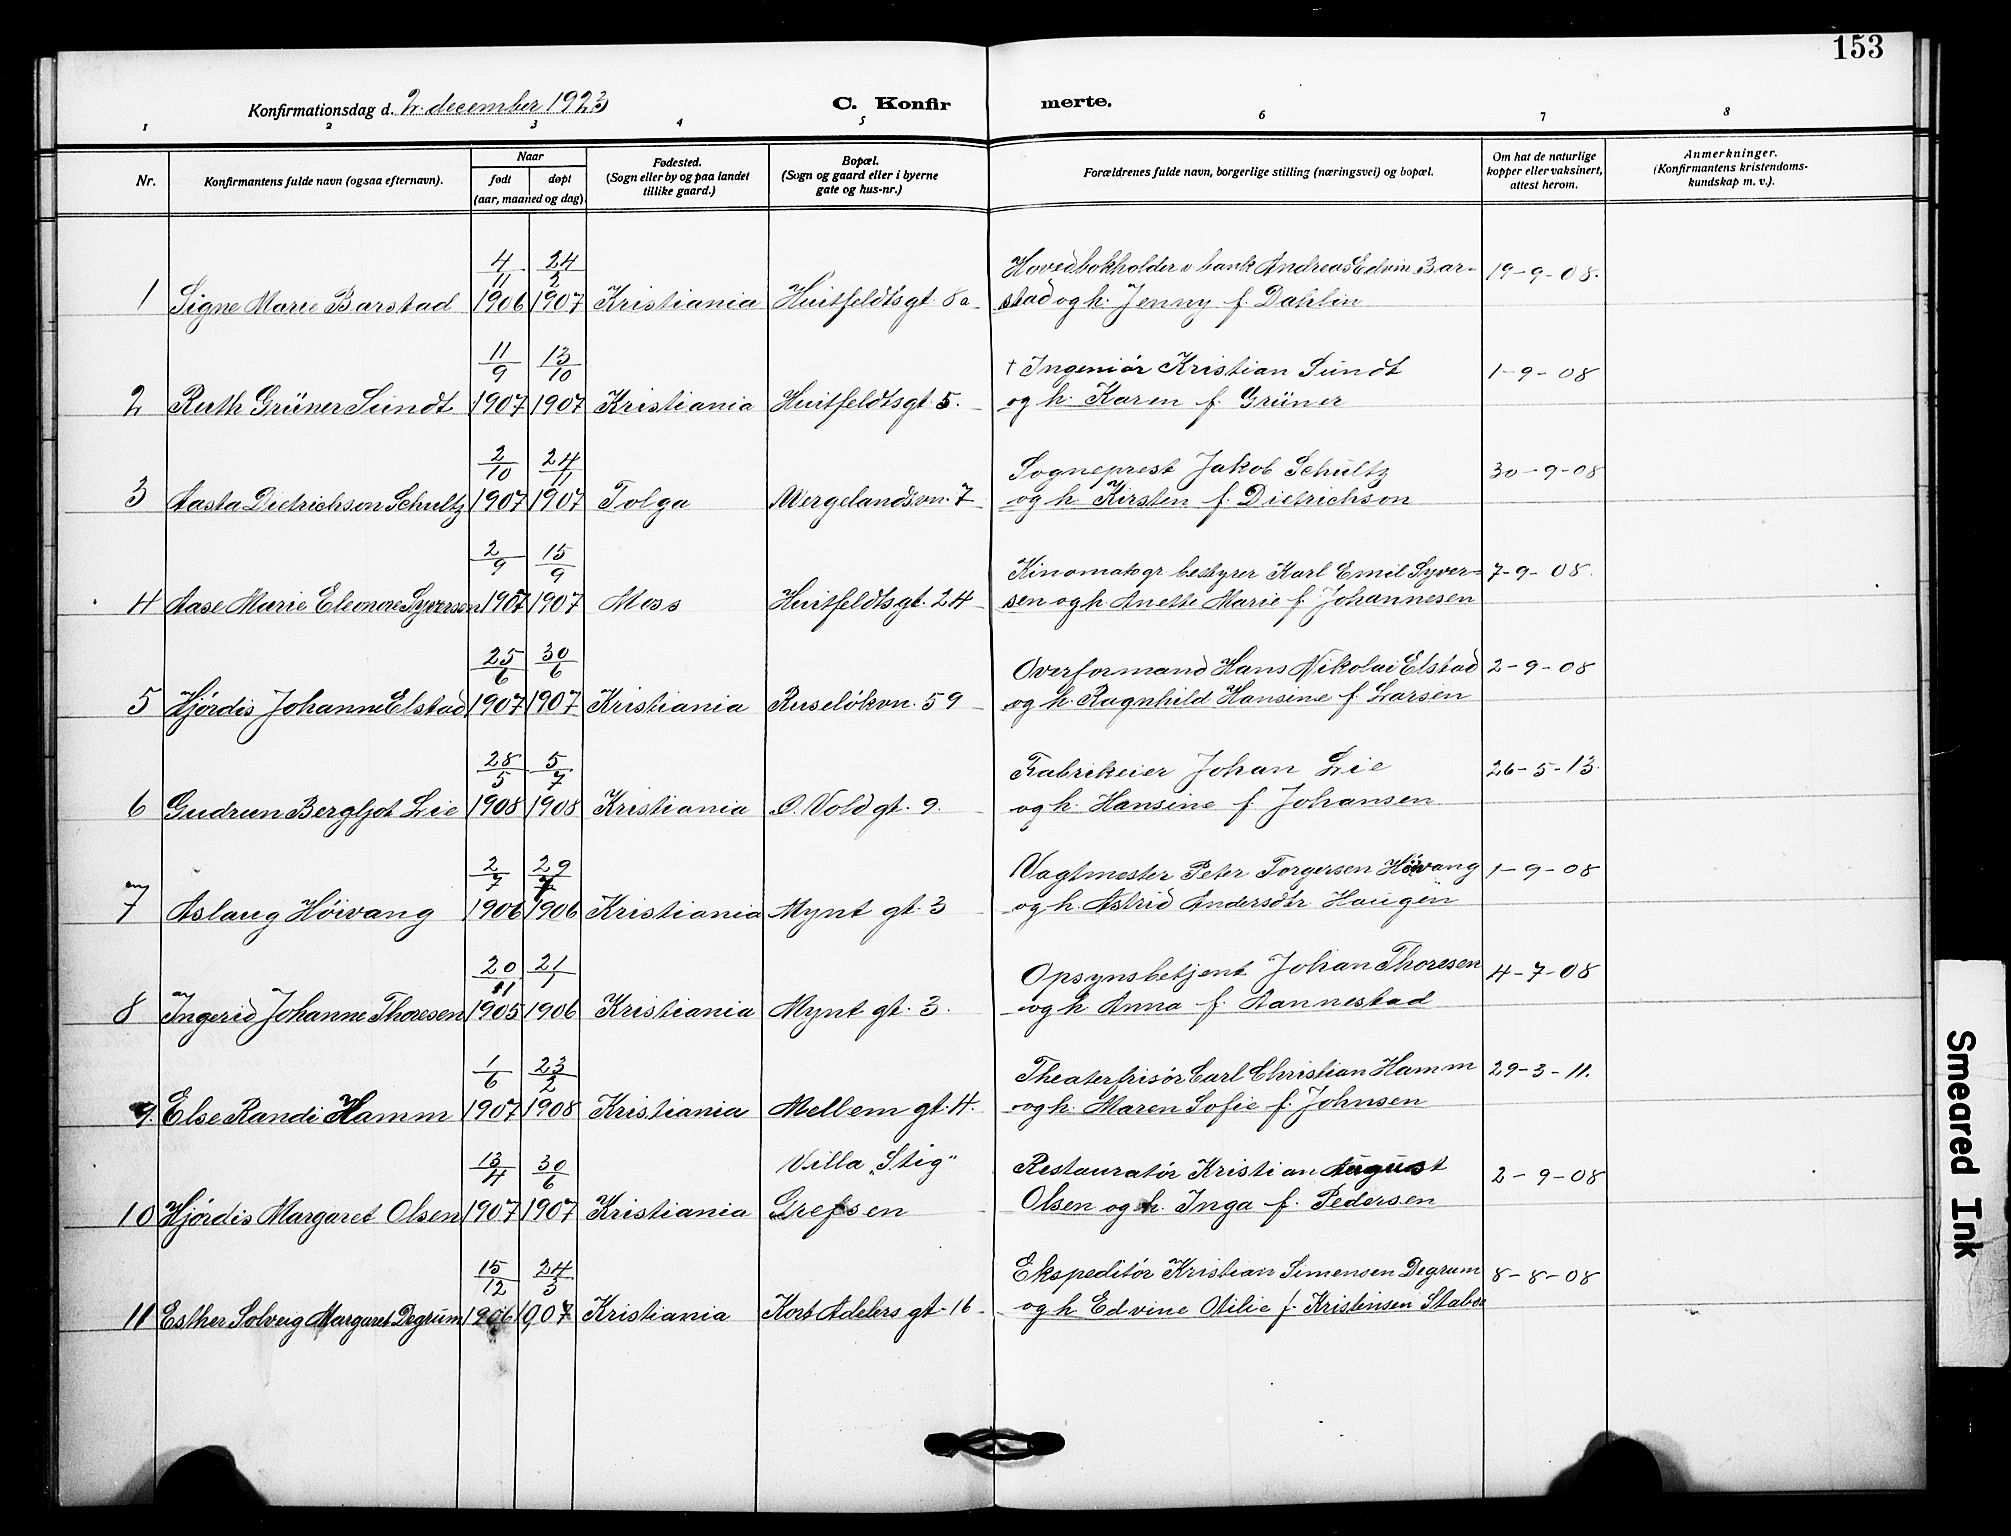 153
Konfirmationsdag d. 2. december 1923 C. Konfir merte.
1 2 3 4 5 6 7 8
Nr.
Konfirmantens fulde navn (ogsaa efternavn).
Naar
født døpt
(aar, maaned og dag).
Fødested.
(Sogn eller by og paa landet
tillike gaard.)
Bopæl.
(Sogn og gaard eller i byerne
gate og hus-nr.)
Forældrenes fulde navn, borgerlige stilling (næringsvei) og bopæl.
Om hat de naturlige
kopper eller vaksinert,
attest herom.
Anmerkninger.
(Konfirmantens kristendoms-
kundskap m. v.).
4/11 24/2 Hovedbokholder v bank Andreas Edvin Bar- 19-9-08.
1 Signe Marie Barstad 1906 1907 Kristiania Huitfeldtsgt. 8a stad og h. Jenny f. Dahlin
11/9 13/10 † Ingeniør Kristian Sundt 1-9-08
2 Ruth Grüner Sundt 1907 1907 Kristiania Huitfeldtsgt. 5. og h. Karen f. Grüner
2/10 24/11 Sogneprest Jakob Schultz 30-9-08
3 Aasta Dietrichson Schultz 1907 1907 Tolga Wergelandsvn. 7 og h. Kirsten f. Dietrichson
2/9 15/9 Kinomatogr. bestyrer Karl Emil Syver- 7-9-08.
4 Aase Marie Eleonore Syversen 1907 1907 Moss Huitfeldtsgt. 24 sen og h Anette Marie f. Johannesen
25/6 30/6 Overformand Hans Nikolai Elstad 2-9-08
5 Hjørdis Johanne Elstad 1907 1907 Kristiania Ruseløkvn. 59 og h. Ragnhild Hansine f. Larsen
28/5 5/7 Fabrikeier Johan Lie 26-5-13.
6 Gudrun Bergljot Lie 1908 1908 Kristiania O. Vold gt. 9. og h. Hansine f. Johansen
2/7 29/7 Vagtmester Peter Torgersen Høivang 1-9-08
7 Aslaug Høivang 1906 1906 Kristiania Mynt gt. 3 og h. Astrid Andersdtr. Haugen
20/11 21/1 Opsynsbetjent Johan Thoresen 4-7-08
8 Ingerid Johanne Thoresen 1905 1906 Kristiania Mynt gt. 3. og h Anna f. Aannestad
1/6 23/2 Theaterfrisør Carl Christian Hamm 29-3-11.
9. Else Randi Hamm 1907 1908 Kristiania Mellem gt. 4. og h. Maren Sofie f. Johnsen
13/4 30/6 Villa „Stig" Restauratør Kristian August 2-9-08
10 Hjørdis Margaret Olsen 1907 1907 Kristiania Grefsen Olsen og h. Inga f. Pedersen
15/12 24/3 Ekspeditør Kristian Simensen Degrum 8-8-08
11 Esther Solveig Margaret Degrum 1906 1907 Kristiania Kort Adelers gt. 16 og h Edvine Otilie f. Kristensen
Smeared Ink